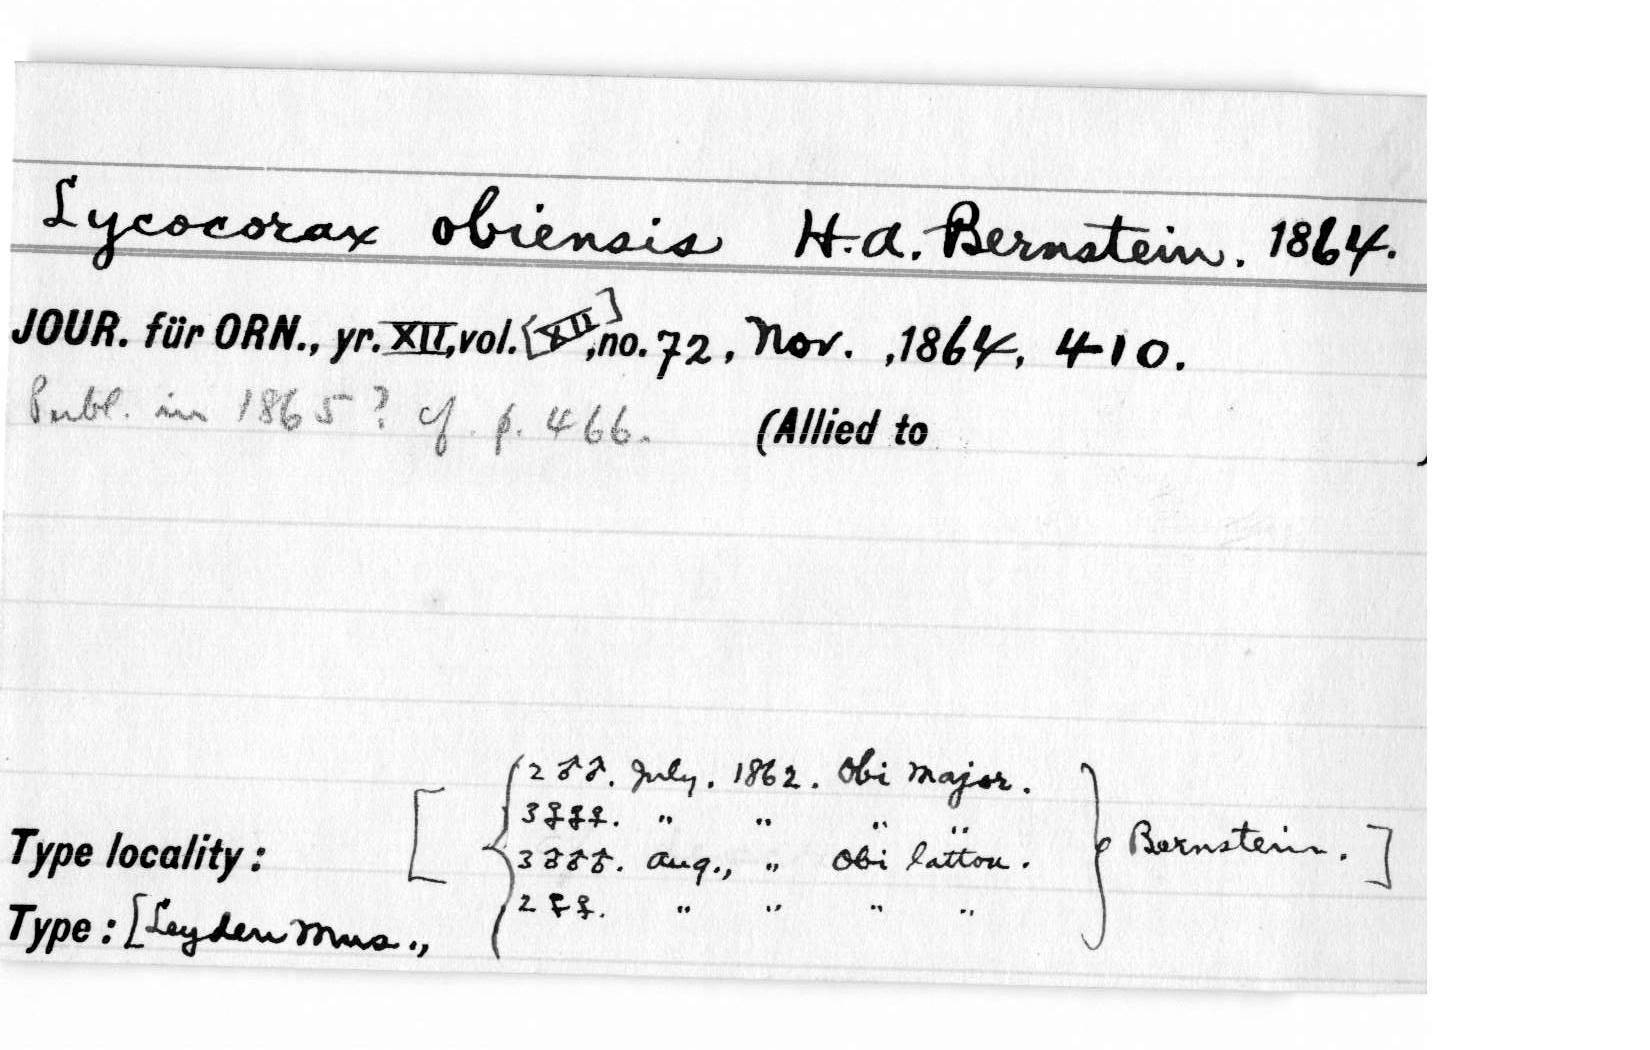 Lycocorax obiensis H.A. Bernstein. 1864.
JOUR. für ORN., yr. XII, vol. [XII], no. 72, Nov. , 1864, 410.
Publ. in 1865? cf. p. 466. (Allied to )
2 ♂♂. July. 1862. Obi Major.
3 ♀♀♀. " " " "
Type locality: [ { 3 ♂♂♂. Aug., " Obi lattou. } Bernstein. ]
2 ♀♀. " " " "
Type: [Leyden Mus.,